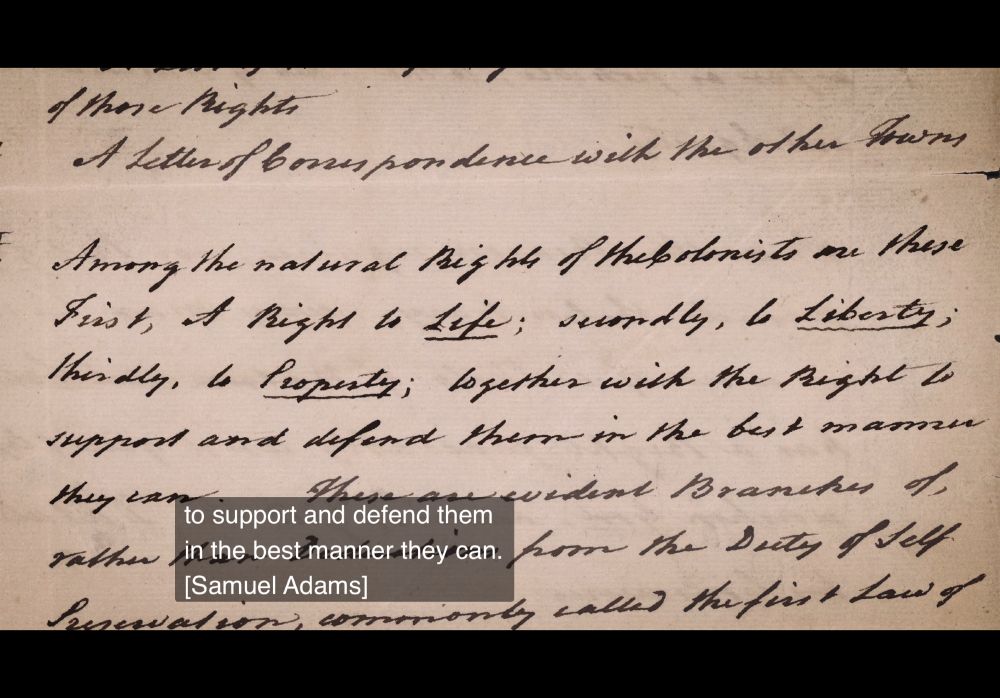 of those Rights
A Letter of Correspondence with the other Towns
Among the natural Rights of the Colonists are these
First, A Right to Life; secondly, to Liberty;
thirdly, to Property; together with the Right to
support and defend them in the best manner
they can. These are evident Branches of,
rather than from the Duty of Self
Preservation, commonly called the first Law of
to support and defend them
in the best manner they can.
[Samuel Adams]